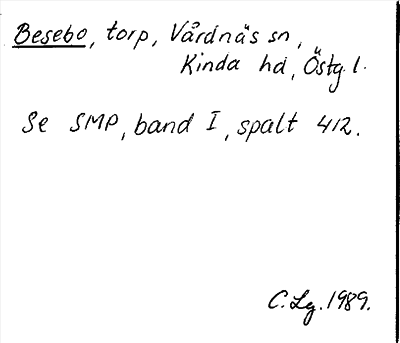 Besebo, torp, Vårdnäs sn,
Kinda hd, Östg. l.
Se SMP, band I, spalt 412.
C. Lg. 1989.